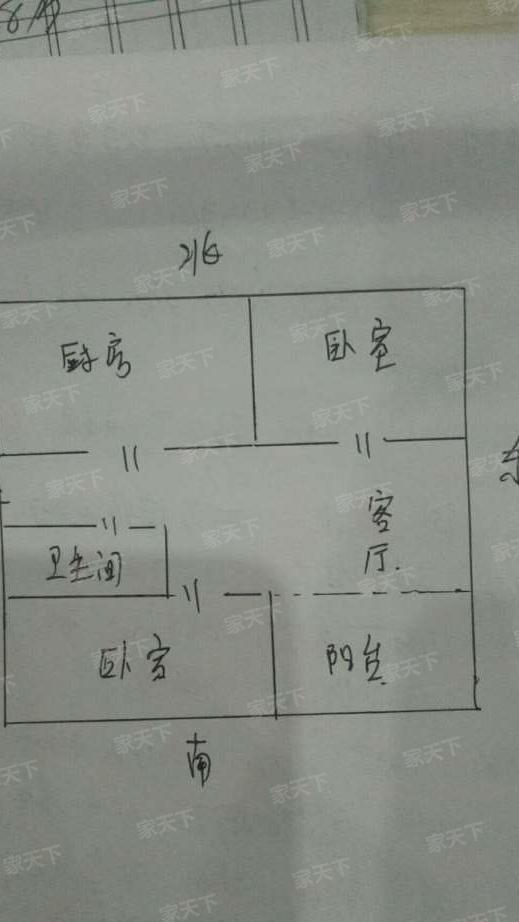 北
厨房
卧室
客
厅.
卫生间
卧室
阳台
南
家天下